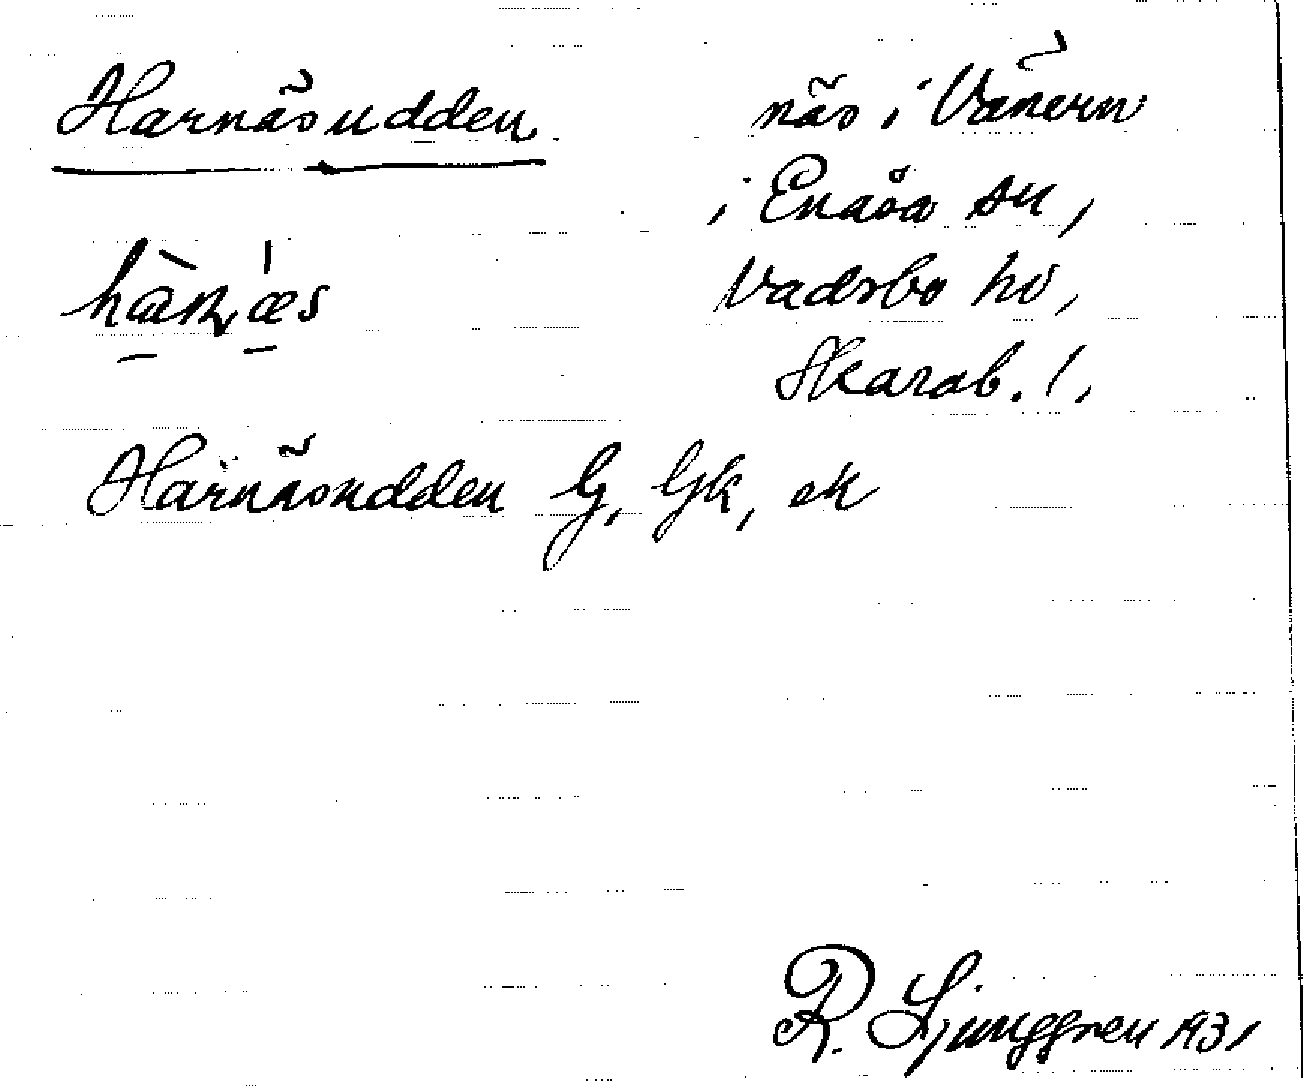 Harnäsudden
näs i Vänern
i Enåsa sn,
Vadsbo hd,
Skarab. l,
Härnäsudden G, Gk, ek
R. Ljunggren 1931